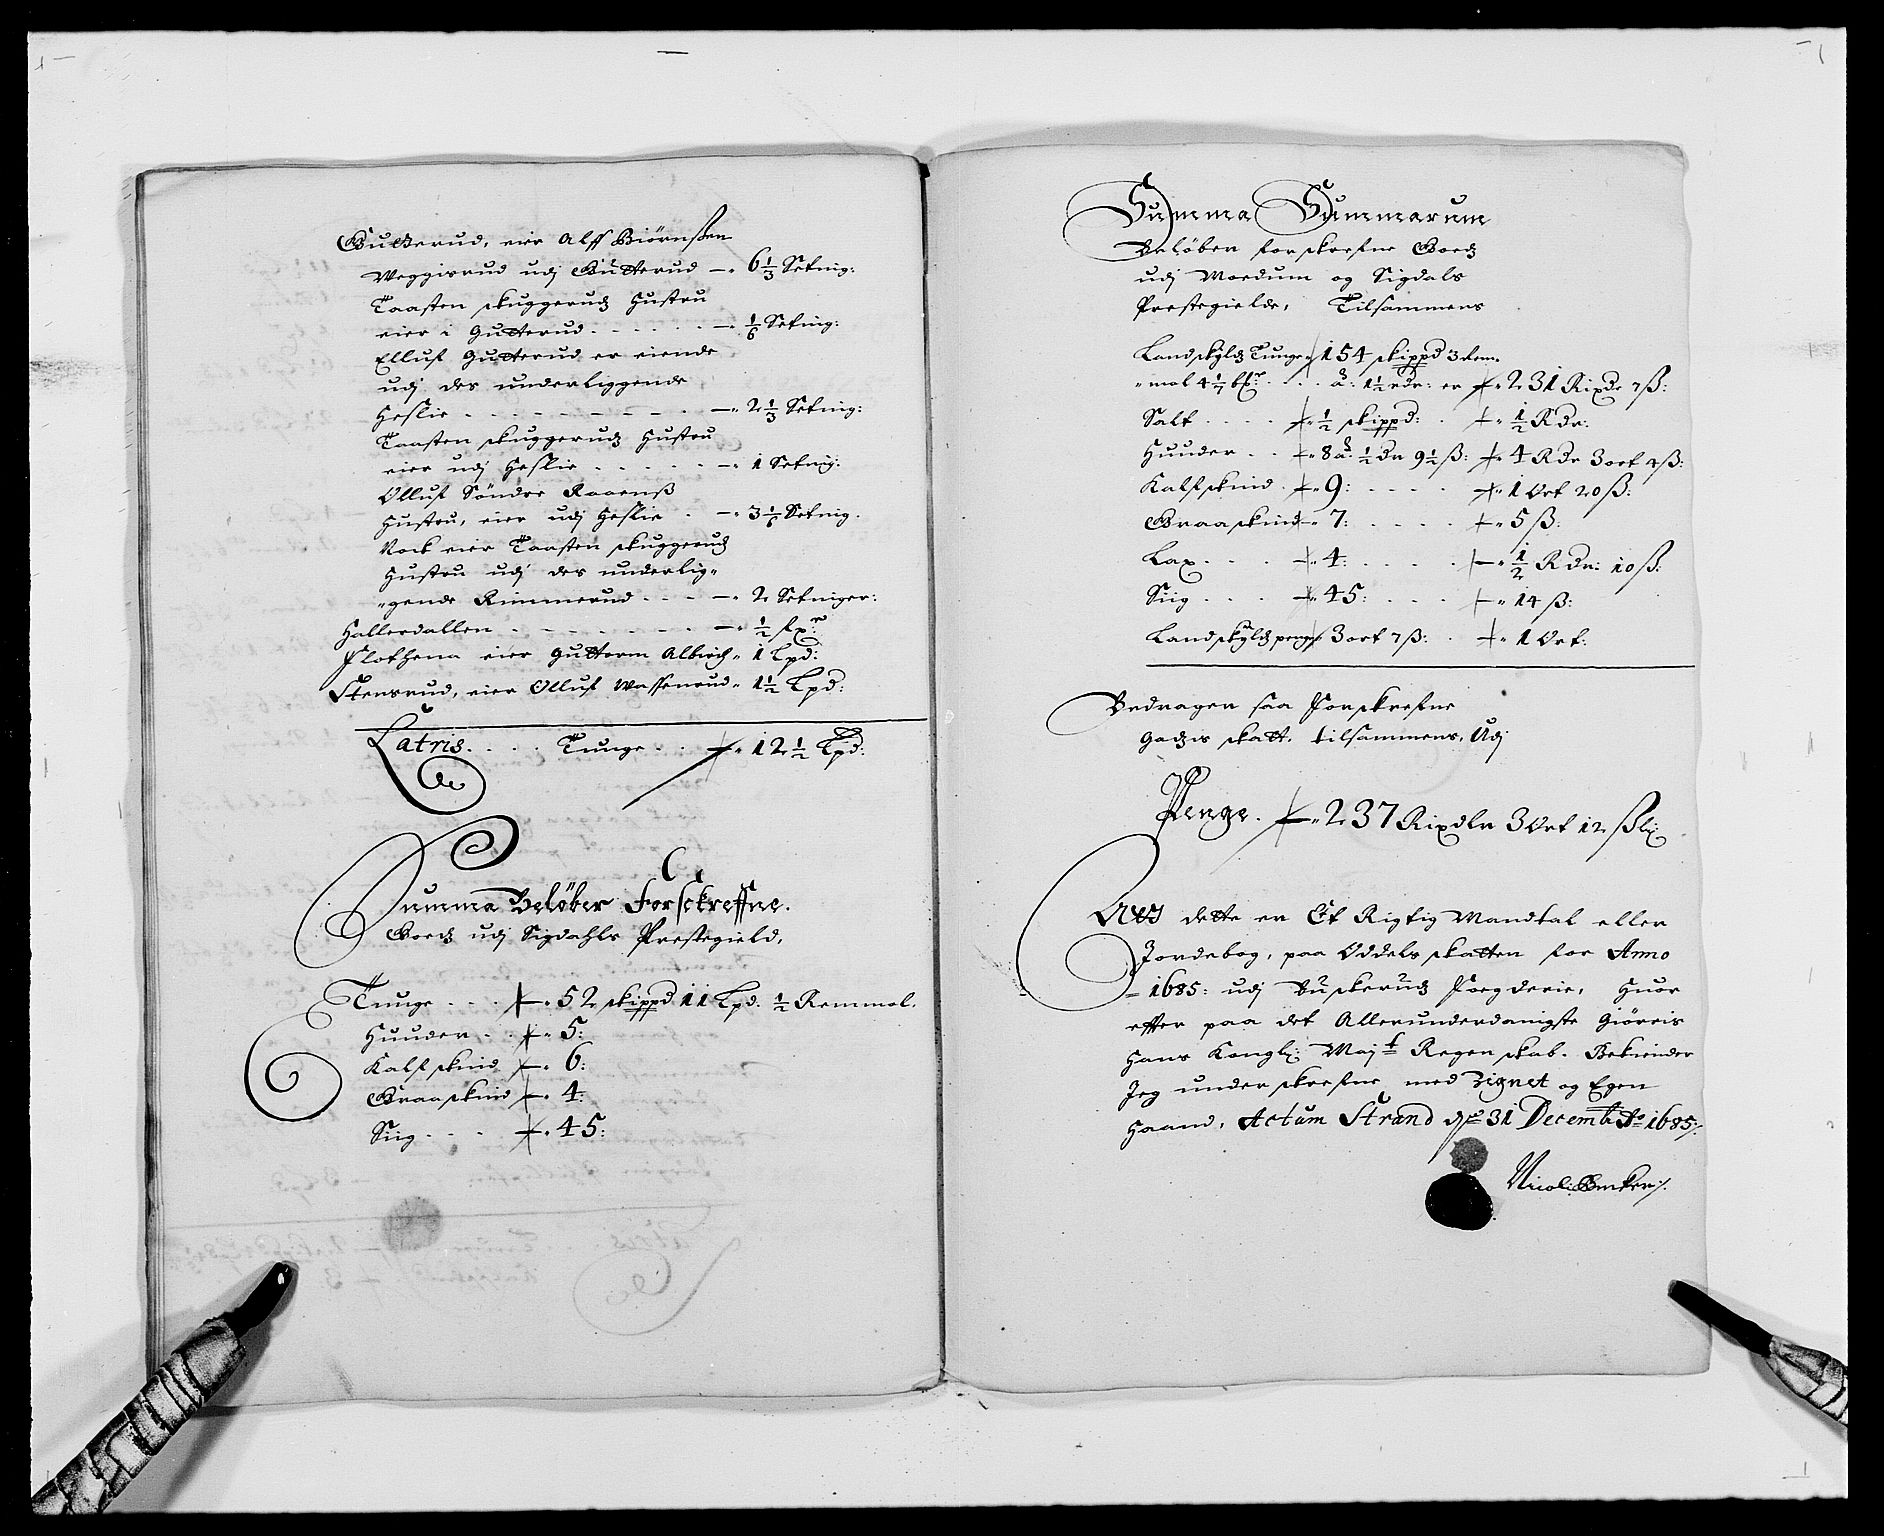 Gulterud, eier Alff Biörnßen
Weggisrud udj Gutterud —" 6 1/3 Setnig:
Taasten skuggeruds Hustru
eier i Gutterud . . . . . —" 1/6 Setnig:
Elluf Gutterud er eiende
udj des underliggende
Heslie - - - - - - - —" 2 1/3 Setnig:
Taasten skuggeruds Hustru
eier udj Heslie . . . . . —" 1 Setnig:
Olluf Söndre Raaenß
Hustru, eier udj Heslie . —" 3 1/6 Setnig.
Nock eier Taasten skuggeruds
Hustru udj des underlig"
"gende Rimmerud . . . —" 2 Setniger:
Hallerdallen . - - - - - - —" 1/2
Plothena eier Guttorm Albrich" 1 Lpd:
Stensrud, eier Olluf Waffenrud" 1 1/2 Lpd:
Latris. . . . Tunge . . —" 12 1/2 Lpd:
Summa Belöber Forsckreffne.
Goeds udj Sigdahls Prestegield,
Tunge . . . —" 52 skippd 11 Lpd. 1/2 Remmol.
Huuder . . —" 5:
Kalfskind —" 6:
Graaskind —" 4:
Siig . . . —" 45:
Summa Summarum
Belöber forskrefne Goeds
udj Moedum og Sigdals
Prestegielde, Tilsammens
Landskyld Tunge" 154 skippd 3 Rem"
"mol 4 1/7 . . . a: 1 1/2 rdr: er —" 231 Rixdr 7 ß:
Salt . . . . —" 1/2 skippd: . —" 1/2 Rdr:
Huuder . . —" 8 1/2 9 1/2 ß: —" 4 Rdr 3 ort 4 ß:
Kalfskind . —" 9: . . . . —" 1 Ort 20 ß:
Graaskind —" 7: . . . . —" 5 ß:
Lax . . . —" 4: . . . . —" 1/2 Rdr: 10 ß:
Siig . . . —" 45: . . . —" 14 ß:
Landskyld penge 3 ort 7 ß: . —" 1 Ort:
Bedragen saa Forskrefne
Godzis skatt. tilsammens, Udj
Penge. —" 237 Rixdlr 3 Ort 12 ßl:
At dette er Et Rigtig Mandtal eller
Jordebog, paa Oddels skatten for Anno
1685: udj Buskeruds Foegderie, Huor
effter paa det Allerunderdanigste Giöreis
Hans Kongl: Mayt Regenskab. Bekiender
Jeg underskrefne med Zignet og Egen
Haand, Actum Strand d 31 Decemb Ao 1685:/.
Nicol: